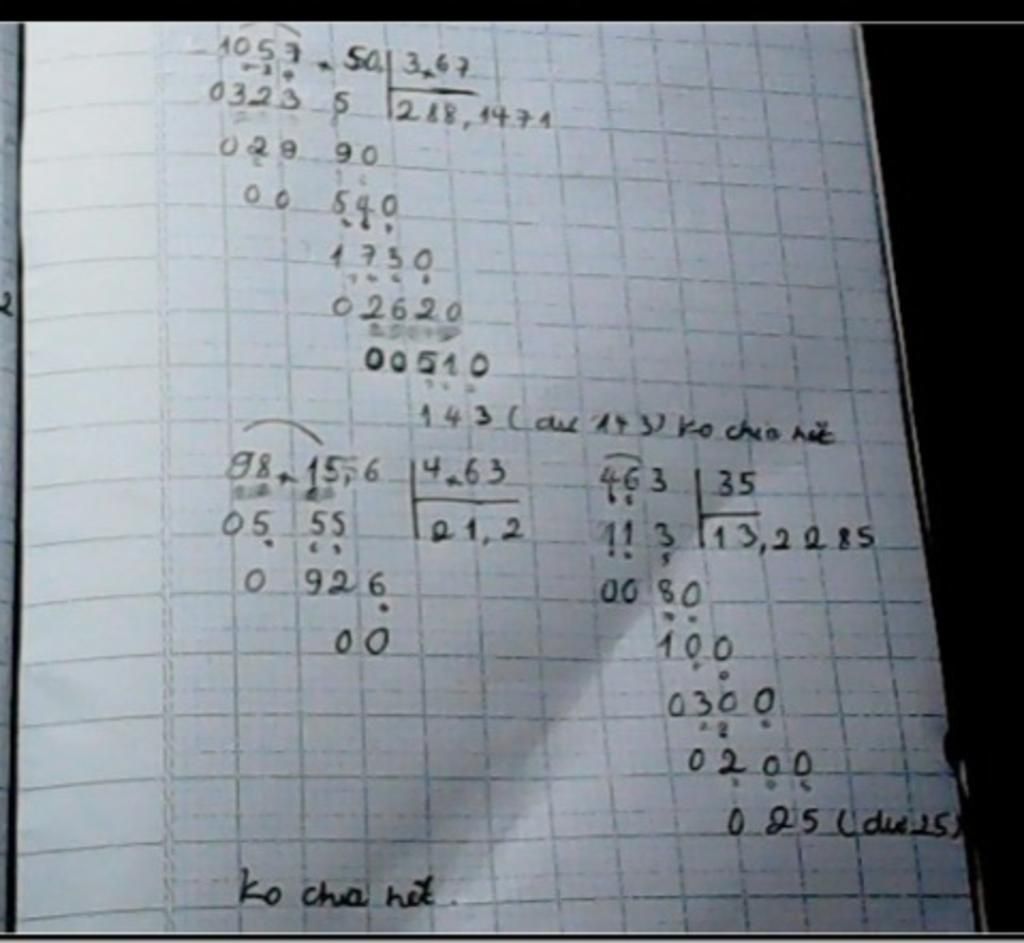 1057.50 3.67
0323 5 288,1471
029 90
00 540
1730
02620
00510
143 (dư 143) ko chia hết
98.15,6 4.63
05 55 21,2
0 926
00
463 35
113 13,2285
0080
100
0300
0200
025 (dư 25)
ko chia hết.